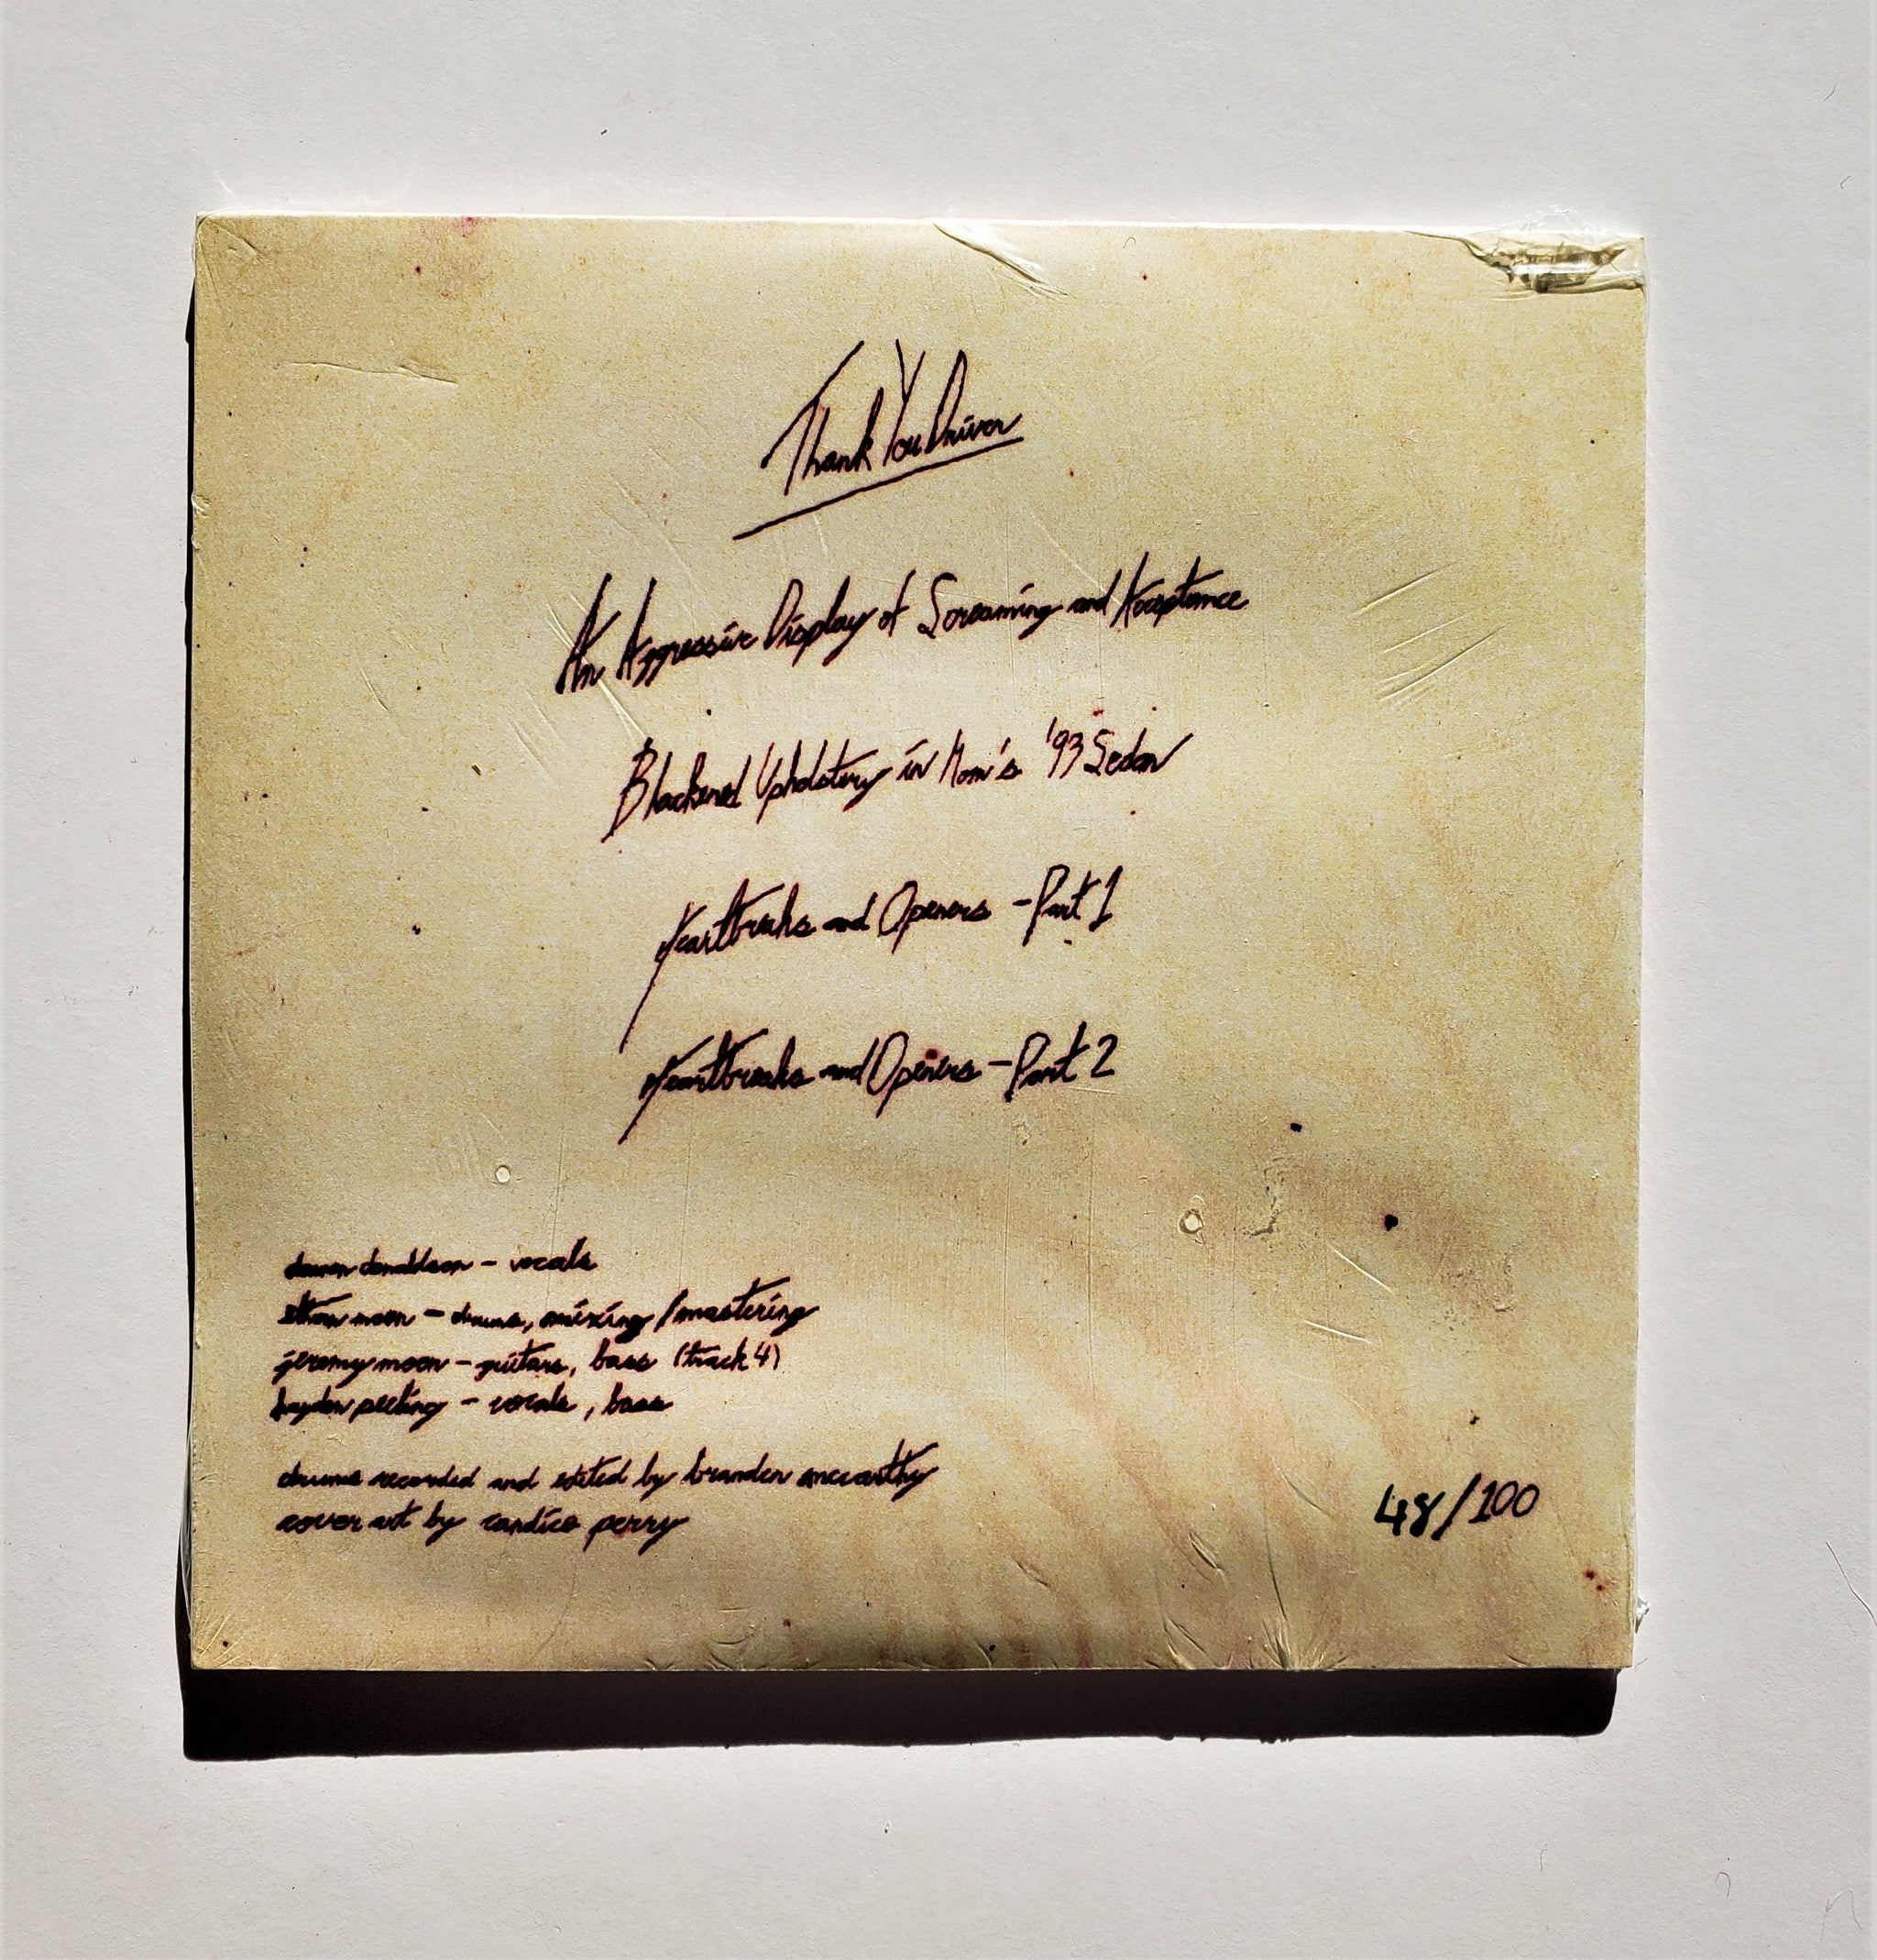 Thank You Driver
An Aggressive Display of Screaming and Acceptance
Blackened Upholstery in Mom's '93 Sedan
Heartbreaks and Openers - Part 1
Heartbreaks and Openers - Part 2
donaldson - vocals
ethan moon - drums, mixing/mastering
jeremy moon - guitars, bass (track 4)
hayden peeling - vocals, bass
drums recorded and edited by branden mccarthy
cover art by candice perry
48/100